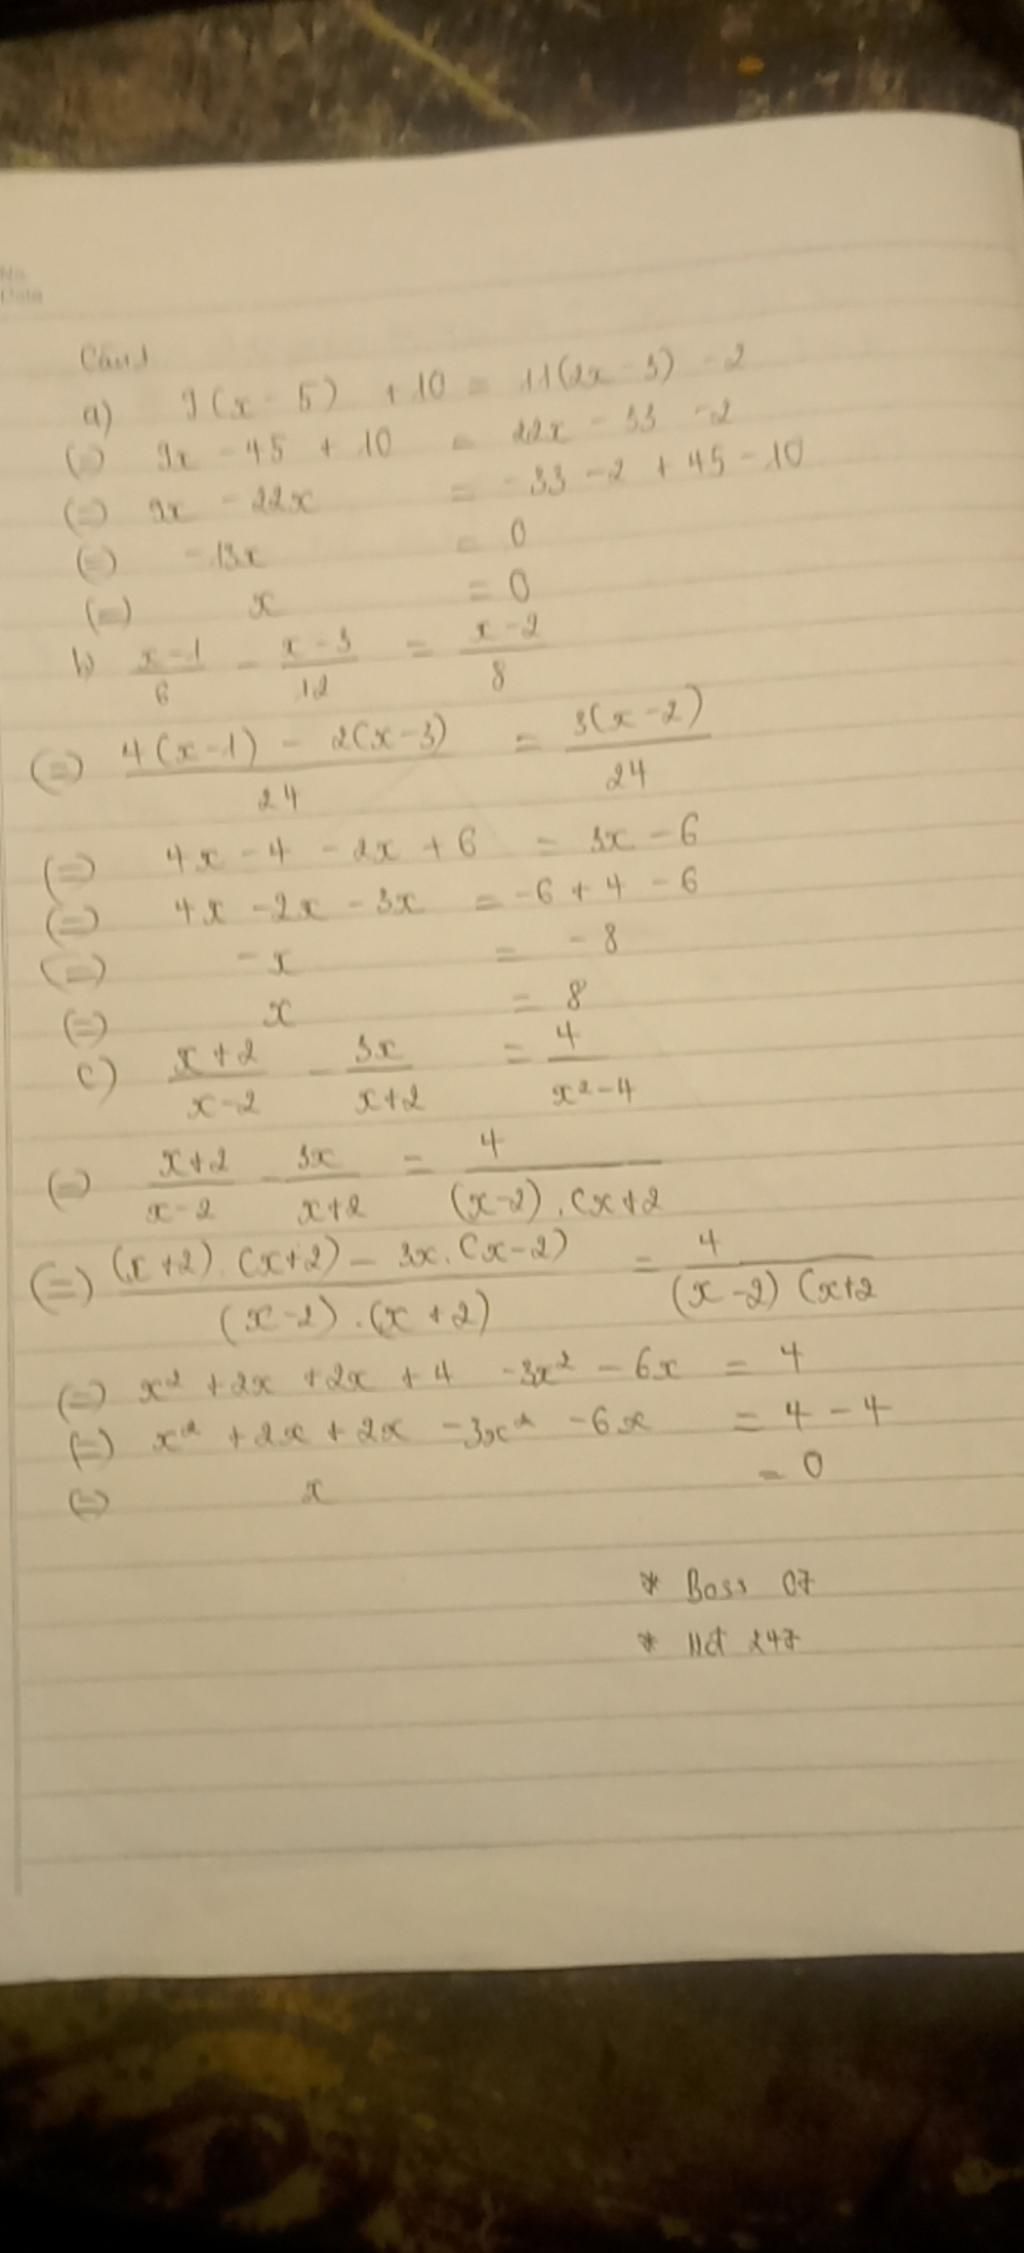 No.
Date
Câu 1
a) 9(x - 5) + 10 = 11(2x - 3) - 2
(=) 9x - 45 + 10 = 22x - 33 - 2
(=) 9x - 22x = - 33 - 2 + 45 - 10
(=) - 13x = 0
(=) x = 0
b) x-1/6 - x-3/12 = x-2/8
(=) 4(x-1) - 2(x-3)/24 = 3(x-2)/24
(=) 4x - 4 - 2x + 6 = 3x - 6
(=) 4x - 2x - 3x = -6 + 4 - 6
(=) - x = - 8
(=) x = 8
c) x+2/x-2 - 3x/x+2 = 4/x²-4
(=) x+2/x-2 - 3x/x+2 = 4/(x-2).(x+2
(=) (x+2).(x+2) - 3x.(x-2)/(x-2).(x+2) = 4/(x-2)(x+2
(=) x² + 2x + 2x + 4 - 3x² - 6x = 4
(=) x² + 2x + 2x - 3x² - 6x = 4 - 4
(=) x = 0
* Boss 07
* 247